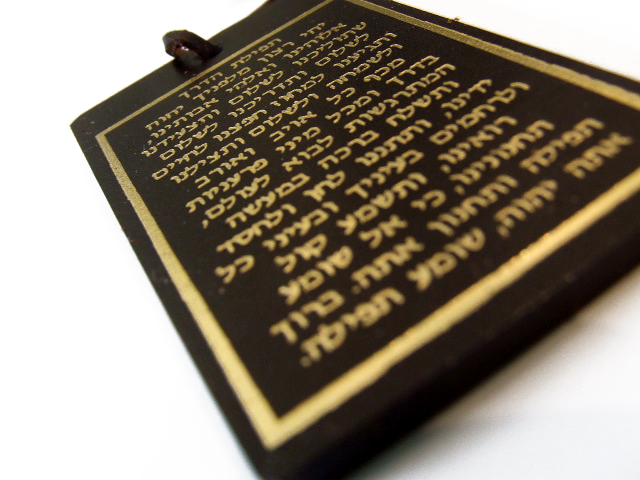 תפילת הדרך
יהי רצון מלפניך יהוה
אלוהינו ואלוהי אבותינו,
שתוליכנו לשלום ותצעידנו
לשלום ותדריכנו לשלום
ותגיענו למחוז חפצנו לחיים
ולשמחה ולשלום ותצילנו
מכף כל אויב ואורב
בדרך ומכל מיני פרעניות
המתרגשות לבוא לעולם,
ותשלח ברכה במעשה
ידינו, ותתננו לחן ולחסד
ולרחמים בעיניך ובעיני כל
רואינו, ותשמע קול
תחנונינו, כי אל שומע
תפילה ותחנון אתה. ברוך
אתה יהוה, שומע תפילה.